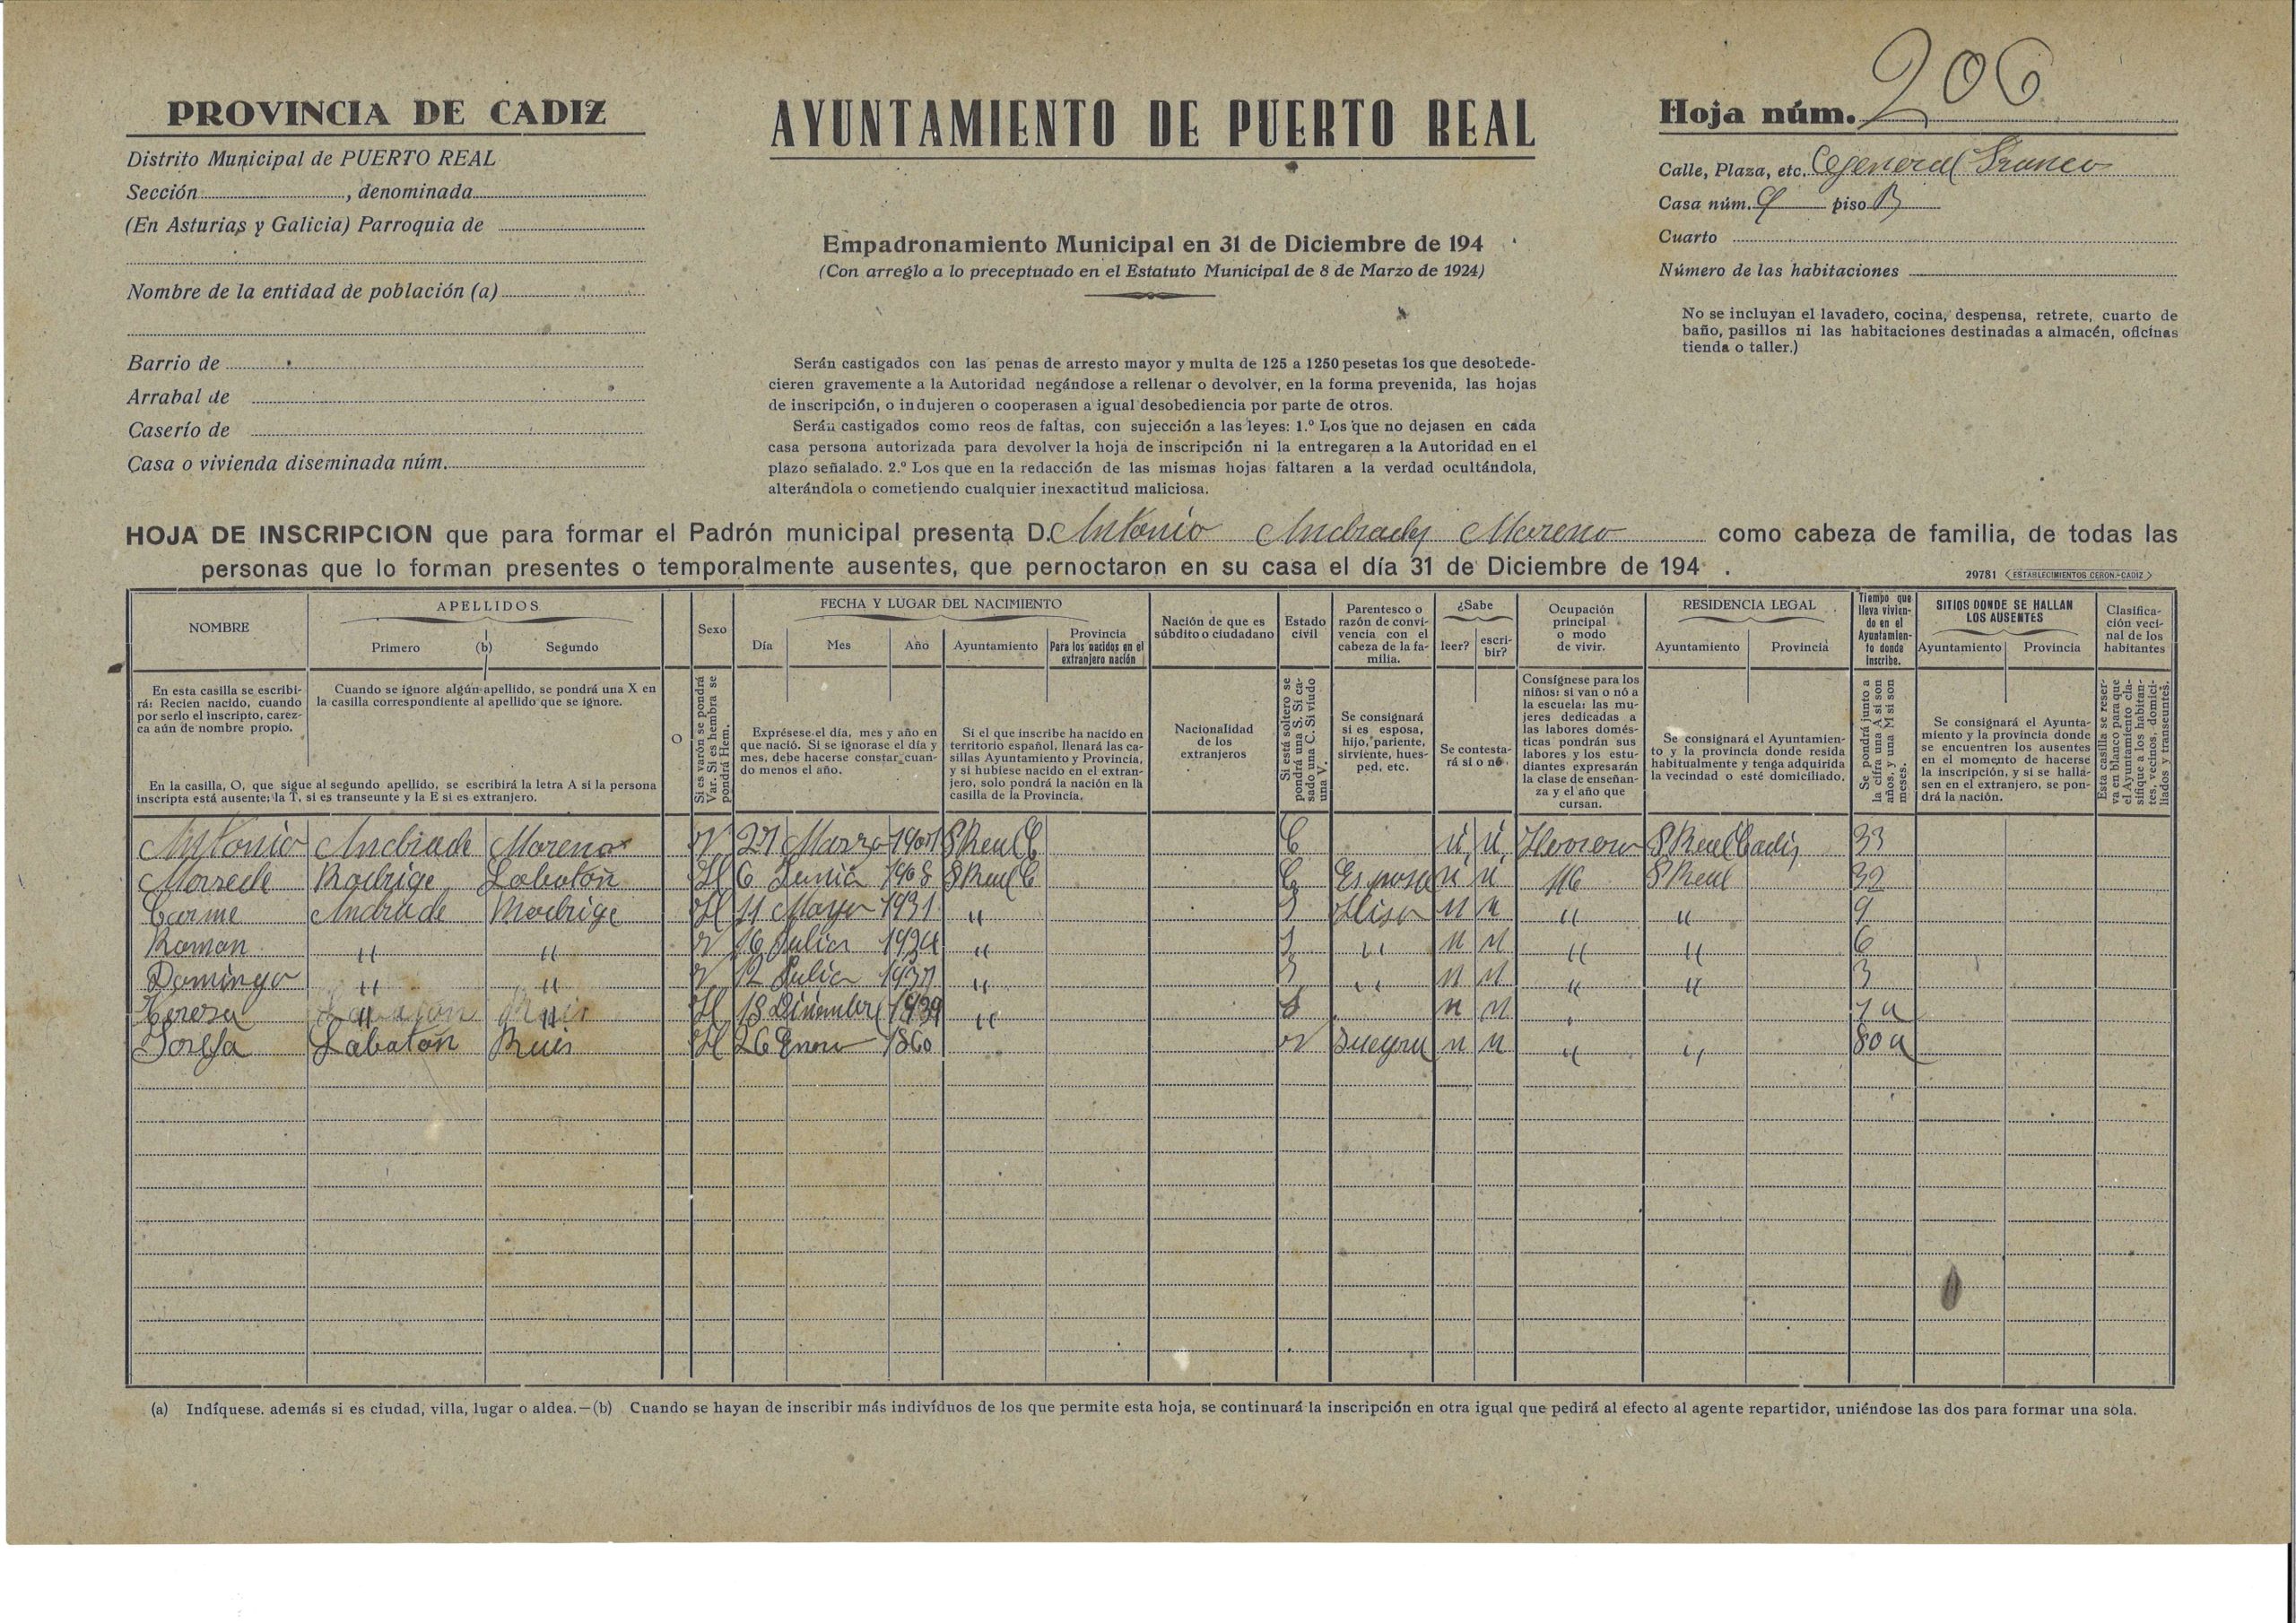 PROVINCIA DE CADIZ
Distrito Municipal de PUERTO REAL
Sección , denominada
(En Asturias y Galicia) Parroquia de
Nombre de la entidad de población (a)
Barrio de
Arrabal de
Caserío de
Casa o vivienda diseminada núm.
AYUNTAMIENTO DE PUERTO REAL
Empadronamiento Municipal en 31 de Diciembre de 194
(Con arreglo a lo preceptuado en el Estatuto Municipal de 8 de Marzo de 1924)
Serán castigados con las penas de arresto mayor y multa de 125 a 1250 pesetas los que desobede-
cieren gravemente a la Autoridad negándose a rellenar o devolver, en la forma prevenida, las hojas
de inscripción, o indujeren o cooperasen a igual desobediencia por parte de otros.
Serán castigados como reos de faltas, con sujección a las leyes: 1.º Los que no dejasen en cada
casa persona autorizada para devolver la hoja de inscripción ni la entregaren a la Autoridad en el
plazo señalado. 2.º Los que en la redacción de las mismas hojas faltaren a la verdad ocultándola,
alterándola o cometiendo cualquier inexactitud maliciosa.
Hoja núm. 206
Calle, Plaza, etc. General Franco
Casa núm. 9 piso B
Cuarto
Número de las habitaciones
No se incluyan el lavadero, cocina, despensa, retrete, cuarto de
baño, pasillos ni las habitaciones destinadas a almacén, oficinas
tienda o taller.)
HOJA DE INSCRIPCION que para formar el Padrón municipal presenta D. Antonio Andrades Moreno como cabeza de familia, de todas las
personas que lo forman presentes o temporalmente ausentes, que pernoctaron en su casa el día 31 de Diciembre de 194 .
29781 ESTABLECIMIENTOS CERON.-CADIZ
NOMBRE
APELLIDOS
Primero (b) Segundo
O
Sexo
FECHA Y LUGAR DEL NACIMIENTO
Día Mes Año Ayuntamiento
Provincia
Para los nacidos en el
extranjero nación
Nación de que es
súbdito o ciudadano
Estado
civil
Parentesco o
razón de convi-
vencia con el
cabeza de la fa-
milia.
¿Sabe
leer? escri-
bir?
Ocupación
principal
o modo
de vivir.
RESIDENCIA LEGAL
Ayuntamiento Provincia
Tiempo que
lleva vivien-
do en el
Ayuntamien-
to donde
inscribe.
SITIOS DONDE SE HALLAN
LOS AUSENTES
Ayuntamiento Provincia
Clasifica-
ción veci-
nal de los
habitantes
En esta casilla se escribi-
rá: Recien nacido, cuando
por serlo el inscripto, carez-
ca aún de nombre propio.
Cuando se ignore algún apellido, se pondrá una X en
la casilla correspondiente al apellido que se ignore.
En la casilla, O, que sigue al segundo apellido, se escribirá la letra A si la persona
inscripta está ausente; la T, si es transeunte y la E si es extranjero.
Si es varón se pondrá
Var. Si es hembra se
pondrá Hem.
Expresese el día, mes y año en
que nació. Si se ignorase el día y
mes, debe hacerse constar cuan-
do menos el año.
Si el que inscribe ha nacido en
territorio español, llenará las ca-
sillas Ayuntamiento y Provincia,
y si hubiese nacido en el extran-
jero, solo pondrá la nación en la
casilla de la Provincia.
Nacionalidad
de los
extranjeros
Si está soltero se
pondrá una S. Si ca-
sado una C. Si viudo
una V.
Se consignará
si es esposa,
hijo, pariente,
sirviente, hues-
ped, etc.
Se contesta-
rá sí o nó
Consígnese para los
niños: si van o nó a
la escuela: las mu-
jeres dedicadas a
las labores domés-
ticas pondrán sus
labores y los estu-
diantes expresarán
la clase de enseñan-
za y el año que
cursan.
Se consignará el Ayuntamien-
to y la provincia donde resida
habitualmente y tenga adquirida
la vecindad o esté domiciliado.
Se pondrá junto a
la cifra una A si son
años, y una M si son
meses.
Se consignará el Ayunta-
miento y la provincia donde
se encuentren los ausentes
en el momento de hacerse
la inscripción, y si se halla-
sen en el extranjero, se pon-
drá la nación.
Esta casilla se reser-
va en blanco para que
el Ayuntamiento cla-
sifique a los habitan-
tes, vecinos, domici-
liados y transeuntes.
Antonio Andrade Moreno V 27 Marzo 1907 P Real C C P Real Cadiz 33
Rodrige Labaton H 6 Junio 1908 P Real C C Esposa P Real 32
Carme Andrade Rodrige H 11 Mayo 1931 " S Hija " " 9
Roman " " V 16 Julio 1934 " S " " " 6
Domingo " " V 12 Julio 1937 " S " " " 3
Teresa " " H 18 Diciembre 1939 " S 1 a
Josefa Labaton Ruis H 26 Enero 1860 V Suegra " " 80 a
(a) Indíquese. además si es ciudad, villa, lugar o aldea.—(b) Cuando se hayan de inscribir más indivíduos de los que permite esta hoja, se continuará la inscripción en otra igual que pedirá al efecto al agente repartidor, uniéndose las dos para formar una sola.